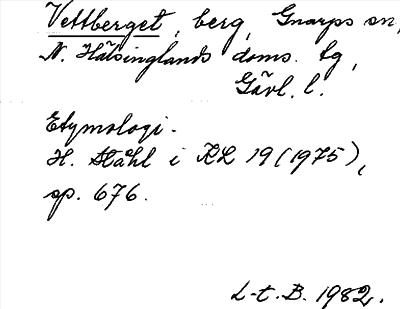 Vettberget, berg, Gnarps sn,
N. Hälsinglands doms. tg,
Gävl. l.
Etymologi.
H. Ståhl i KL 19 (1975),
sp. 676.
L-t. B. 1982.